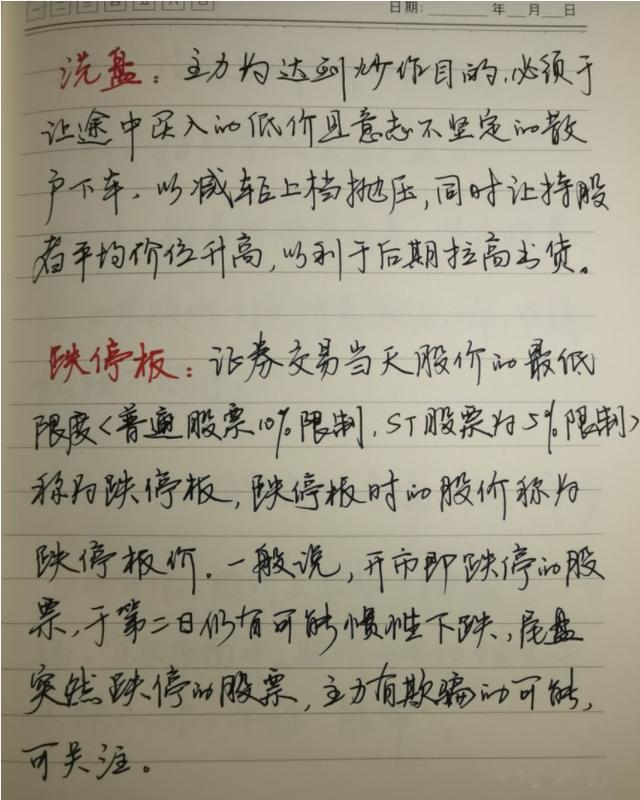 日期: 年 月 日
洗盘：主力为达到炒作目的，必须于
让途中买入的低价且意志不坚定的散
户下车，以减轻上档抛压，同时让持股
者平均价位升高，以利于后期拉高出货。
跌停板：证券交易当天股价的最低
限度<普通股票10%限制，ST股票为5%限制>
称为跌停板，跌停板时的股价称为
跌停板价。一般说，开市即跌停的股
票，于第二日仍有可能惯性下跌，尾盘
突然跌停的股票，主力有欺骗的可能，
可关注。